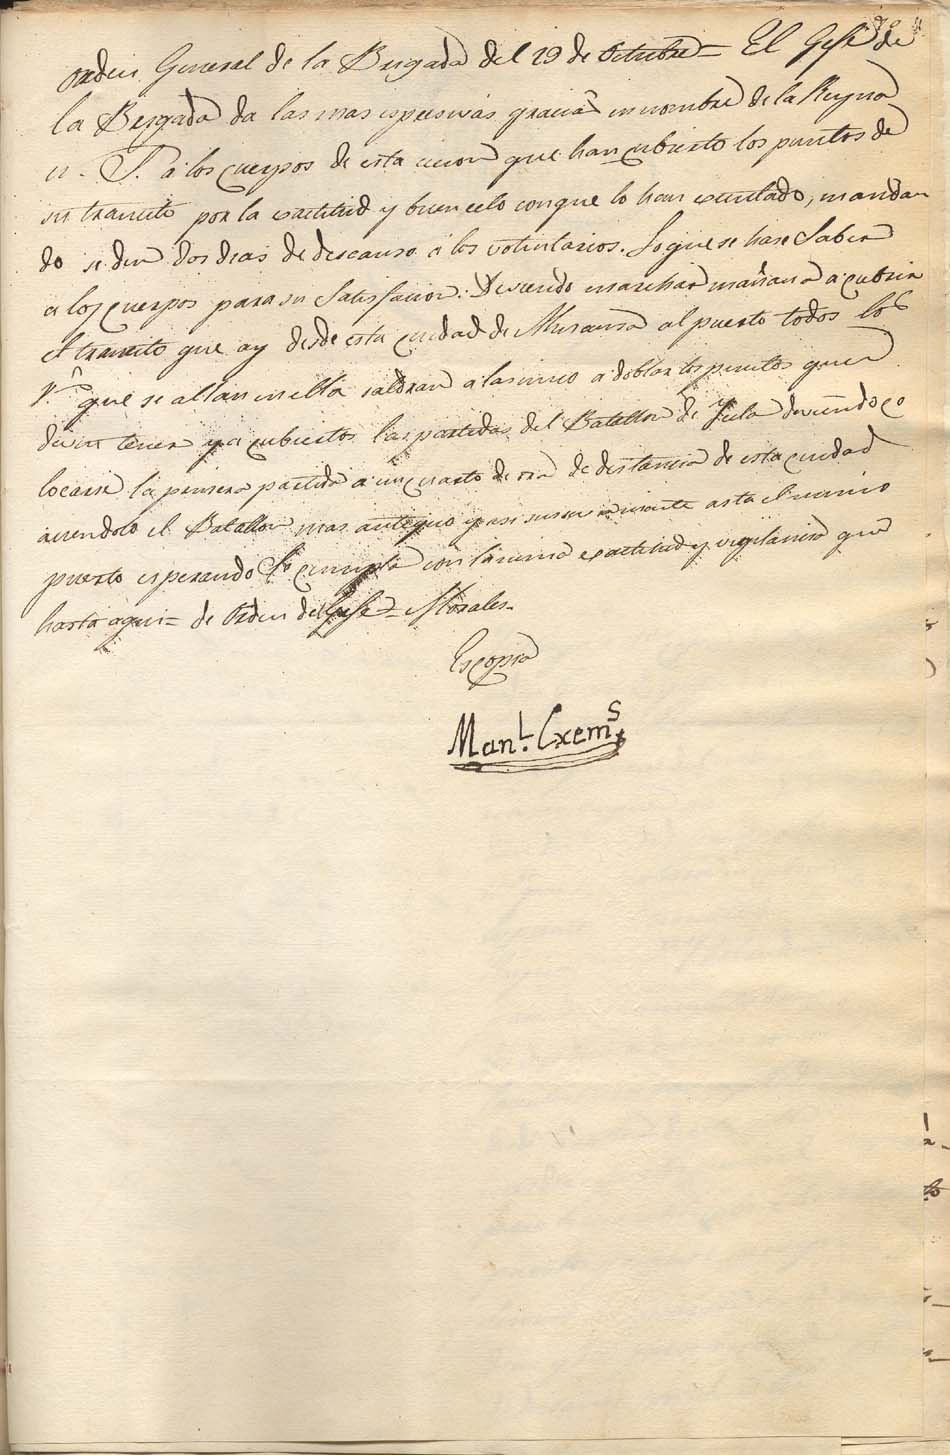 Orden General de la Brigada del 19 de Octubre = El Gefe de
la Brigada da las mas espresivas gracias en nombre de la Reyna
N. S. a los cuerpos de esta que han cubierto los puntos de
su transito por la exactitud y buen celo conque lo han executado, mandan
do se den dos dias de descanso a los voluntarios. Lo que se hase Saber
a los cuerpos para su Satisfacion. Deviendo marchar mañana a cubrir
el transito que ay desde esta ciudad de al puerto todos los
que se allan en ella saldran a las cinco a doblar los puntos que
deven tener ya cubiertos las partidas del Batallon de Yecla deviendo co
locarse la primera partida a un cuarto de ora de distancia de esta ciudad
aciendolo el Batallon mas antiguo y asi asta el mismo
puerto esperando se cumpla con la misma exactitud y vigilancia que
hasta aqui = de Orden del Gefe = Morales.
Es copia
Man.l Cxem.s